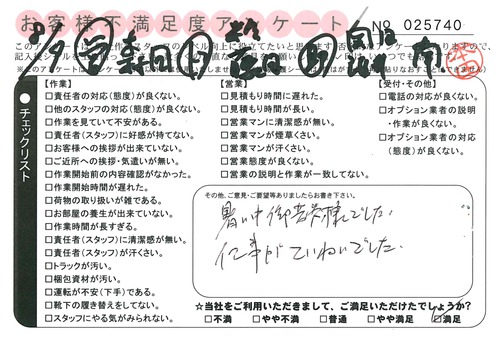 お客様不満足度アンケート
No 025740
【作業】
□責任者の対応(態度)が良くない。
□他のスタッフの対応(態度)が良くない。
□作業を見ていて不安がある。
□責任者(スタッフ)に好感が持てない。
□お客様への挨拶が出来ていない。
□ご近所への挨拶・気遣いが無い。
□作業開始前の内容確認がなかった。
□作業開始時間が遅れた。
□荷物の取り扱いが雑である。
□お部屋の養生が出来ていない。
□作業時間が長すぎる。
□責任者(スタッフ)に清潔感が無い。
□責任者(スタッフ)が汗くさい。
□トラックが汚い。
□梱包資材が汚い。
□運転が不安(下手)である。
□靴下の履き替えをしてない。
□スタッフにやる気がみられない。
【営業】
□見積もり時間に遅れた。
□見積もり時間が長い。
□営業マンに清潔感が無い。
□営業マンが煙草くさい。
□営業マンが汗くさい。
□営業態度が良くない。
□営業の説明と作業が一致してない。
【受付・その他】
□電話の対応が良くない。
□オプション業者の説明
・作業が良くない。
□オプション業者の対応
(態度)が良くない。
チェックリスト
その他、ご意見・ご要望等ありましたらお書き下さい。
暑い中御苦労様でした
仕事がていねいでした.
☆当社をご利用いただきまして、ご満足いただけたでしょうか?
□不満 □やや不満 □普通 □やや満足 □満足